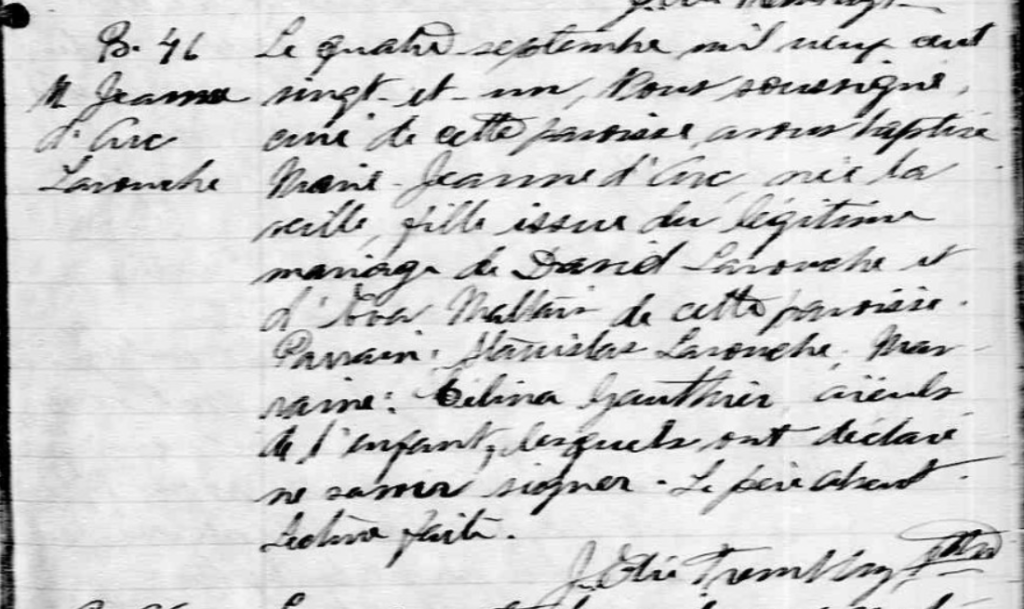 B. 46
M Jeanne
d'Arc
Larouche
Le quatre septembre mil neuf cent
vingt-et-un, Nous soussigné,
curé de cette paroisse, avons baptisé
Marie-Jeanne d'Arc, née la
veille, fille issue du légitime
mariage de David Larouche et
d'Eva Maltais de cette paroisse.
Parrain: Stanislas Larouche. Mar-
raine: Célina Gauthier, aïeuls
de l'enfant, lesquels ont déclaré
ne savoir signer. Le père absent.
Lecture faite.
J. Elie Tremblay Ptre